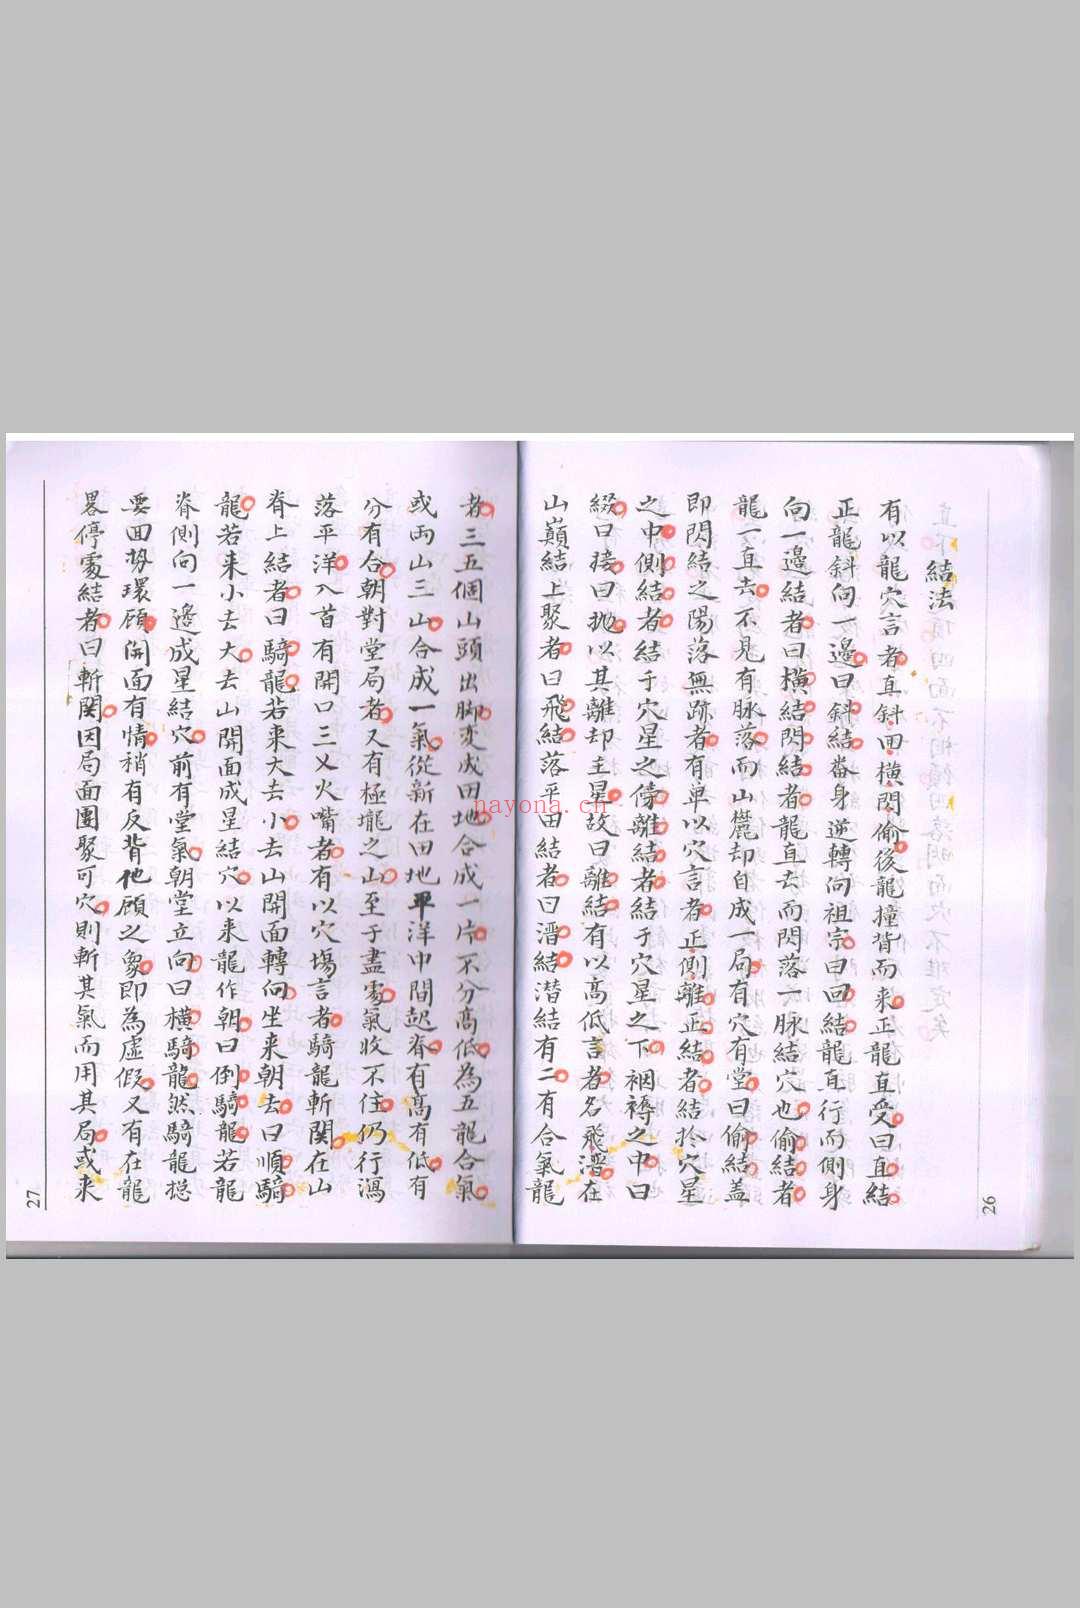 結法
有以龍穴言者直斜回橫閃偷後龍撞背而來正龍直受曰直結
正龍斜向一邊曰斜結番身逆轉向祖宗曰回結龍直行而側身
向一邊結者曰橫結閃結者龍直去而閃落一脉結穴也偷結者
龍一直去不見有脉落而山麓却自成一局有穴有堂曰偷結盖
即閃結之陽落無跡者有单以穴言者正側離正結者結扵穴星
之中側結者結于穴星之傍離結者結于穴星之下裀褥之中曰
綴曰接曰抛以其離却主星故曰離結有以高低言者名飛潛在
山巔結上聚者曰飛結落平田結者曰潛結潜結有二有合氣龍
26
者三五個山頭出脚变成田地合成一片不分高低為五龍合氣
或両山三山合成一氣從新在田地平洋中間起脊有高有低有
分有合朝對堂局者又有極壠之山至于盡處氣收不住仍行瀉
落平洋入首有開口三乂火嘴者有以穴場言者騎龍斬関在山
脊上結者曰騎龍若來大去小去山開面轉向坐来朝去曰順騎
龍若来小去大去山開面成星結穴以来龍作朝曰倒騎龍若龍
脊側向一邊成星結穴前有堂氣朝堂立向曰橫騎龍然騎龍捴
要面势環顾開面有情稍有反背他顧之象即為虛假又有在龍
畧停處結者曰斬関因局面團聚可穴則斬其氣而用其局或来
27
nayona.cn